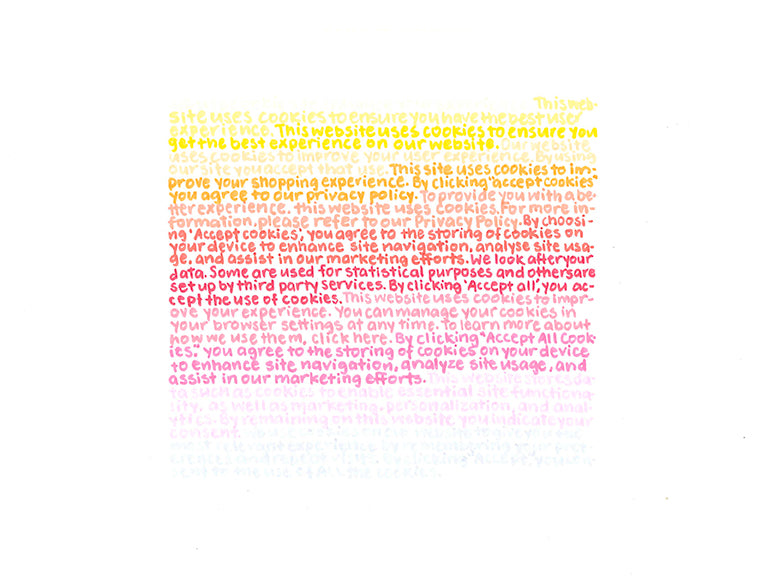 This web-
site uses cookies to ensure you have the best user
experience. This website uses cookies to ensure you
get the best experience on our website. Our website
uses cookies to improve your user experience. By using
our site you accept that use. This site uses cookies to im-
prove your shopping experience. By clicking "accept cookies"
you agree to our privacy policy. To provide you with a be-
tter experience, this website uses cookies. For more in-
formation, please refer to our Privacy Policy. By choosi-
ng 'Accept cookies', you agree to the storing of cookies on
your device to enhance site navigation, analyse site usa-
ge, and assist in our marketing efforts. We look after your
data. Some are used for statistical purposes and others are
set up by third party services. By clicking 'Accept all', you ac-
cept the use of cookies. This website uses cookies to impr-
ove your experience. You can manage your cookies in
your browser settings at any time. To learn more about
how we use them, click here. By clicking "Accept All Cook-
ies", you agree to the storing of cookies on your device
to enhance site navigation, analyze site usage, and
assist in our marketing efforts. This website stores da-
ta such as cookies to enable essential site functiona-
lity, as well as marketing, personalization, and anal-
ytics. By remaining on this website you indicate your
consent. cookies on our website to give you the
most relevant experience by remembering your pref-
erences and repeat visits. By clicking 'Accept', you
sent to the use of All the cookies.